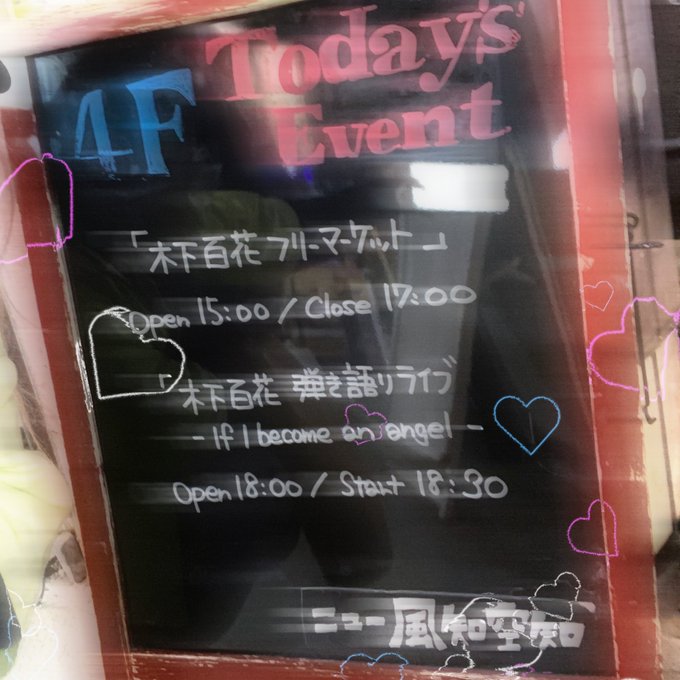 4F Today's
Event
「木下百花 フリーマーケット」
Open 15:00 / Close 17:00
「木下百花 弾き語りライブ
- If I become an angel -
Open 18:00 / Start 18:30
ニュー 風知空知